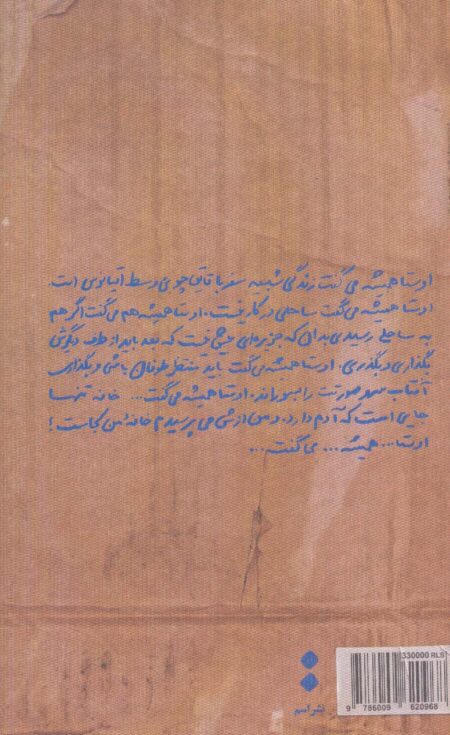 اوستا همیشه می گفت زندگی شبیه سفر با قایق چوبی وسط اقیانوس است.
اوستا همیشه می گفت ساحلی در کار نیست. اوستا همیشه هم می گفت اگر هم
به ساحلی رسیدی بدان که جزیره‌ای بیش نیست که بعد باید از طرف دیگرش
بگذاری و بگذری. اوستا همیشه می گفت باید منتظر طوفان باشی و بگذاری
آفتاب صورتت را بسوزاند. اوستا همیشه می گفت... خانه تنها
جایی است که آدم دارد. و من ازش می پرسیدم خانهٔ من کجاست!
اوستا... همیشه... می گفت...
330000 RLS
9 786009 620968
نشر اسم